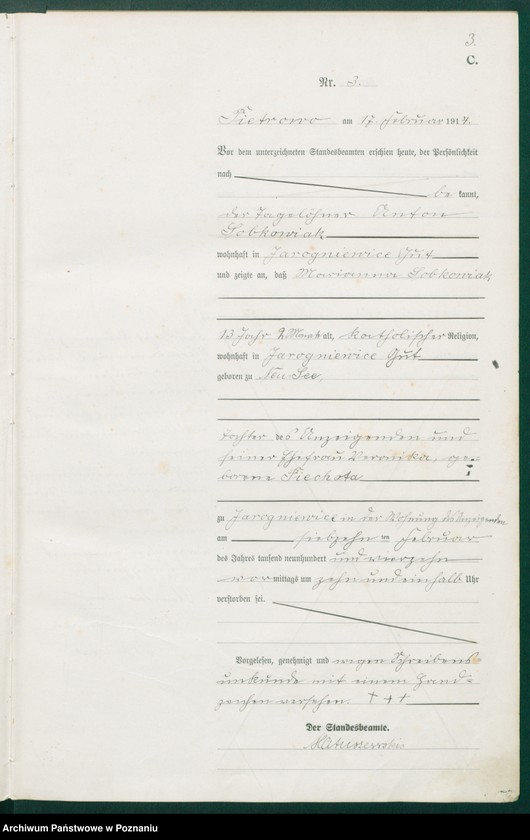 3.
C.
Nr. 3.
Pietrowo am 17. Februar 1914.
Vor dem unterzeichneten Standesbeamten erschien heute, der Persönlichkeit
nach
be kannt,
der Tagelöhner Anton
Sobkowiak
wohnhaft in Jarogniewice Gut
und zeigte an, daß Marianna Sobkowiak
13 Jahr 2 Monat alt, katholischer Religion,
wohnhaft in Jarogniewice Gut
geboren zu Neu See,
Tochter des Anzeigenden und
seiner Ehefrau Veronika, ge=
borene Piechota
zu Jarogniewice in der Wohnung des Anzeigenden
am siebzehn ten Februar
des Jahres tausend neunhundert und vierzehn
vor mittags um zehn undeinhalb Uhr
verstorben sei.
Vorgelesen, genehmigt und wegen Schreibens
unkunde mit einem Hand=
zeichen versehen. + + +
Der Standesbeamte.